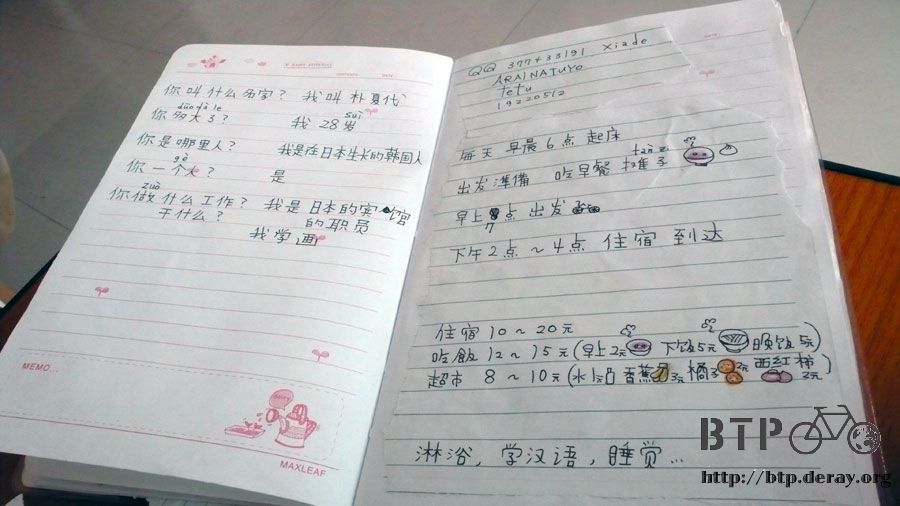 你叫什么名字？ 我叫朴夏代
duō dà le
你多大了？ 我28岁
suì
你是哪里人？ 我是在日本生长的韩国人
gè
你一个人？ 是
zuò
你做什么工作？ 我是日本的宾馆
干什么？ 的职员
我学画
MEMO...
MAXLEAF
QQ 377433191 xiade
ARAINATUYO
tetu
19220512
每天 早晨6点 起床
出发準備 吃早餐
早上7点 出发
下午2点～4点 住宿 到达
住宿 10～20元
吃飯 12～15元(早上2元 下饭5元 晚饭5元)
超市 8～10元(水1元 香蕉 3元 橘子 2元 西紅柿 2元
淋浴，学汉语，睡觉…
BTP
http://btp.deray.org